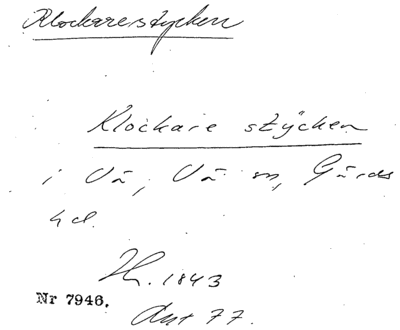 Klockarestycken
Klockare stÿcken
i Vä, Vä sn, Gärds
hd.
H. 1843
Nr 7946.
Akt 77.